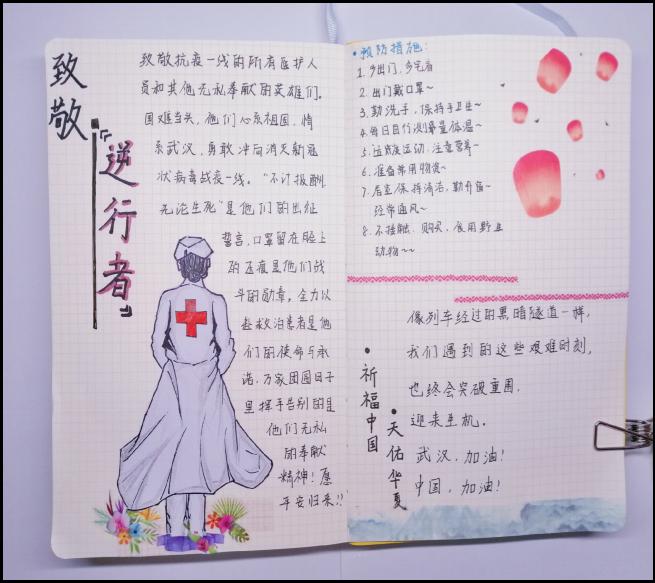 致敬
『逆行者』
致敬抗疫一线的所有医护人
员和其他无私奉献的英雄们。
国难当头,他们心系祖国,情
系武汉,勇敢冲向消灭新冠
状病毒战疫一线。“不计报酬
无论生死”是他们的出征
誓言,口罩留在脸上
的压痕是他们战
斗的勋章,全力以
赴救治患者是他
们的使命与承
诺,万家团圆日子
里挥手告别的是
他们无私
的奉献
精神!愿
平安归来!!
•预防措施:
1.少出门,多宅着
2.出门戴口罩~
3.勤洗手,保持手卫生~
4.每日自行测量体温~
5.适度运动,注意营养~
6.准备常用物资~
7.居室保持清洁,勤开窗~
经常通风~
8.不接触、购买、食用野生
动物~~
像列车经过的黑暗隧道一样,
我们遇到的这些艰难时刻,
也终会突破重围,
迎来生机。
武汉,加油!
中国,加油!
•祈福中国
•天佑华夏